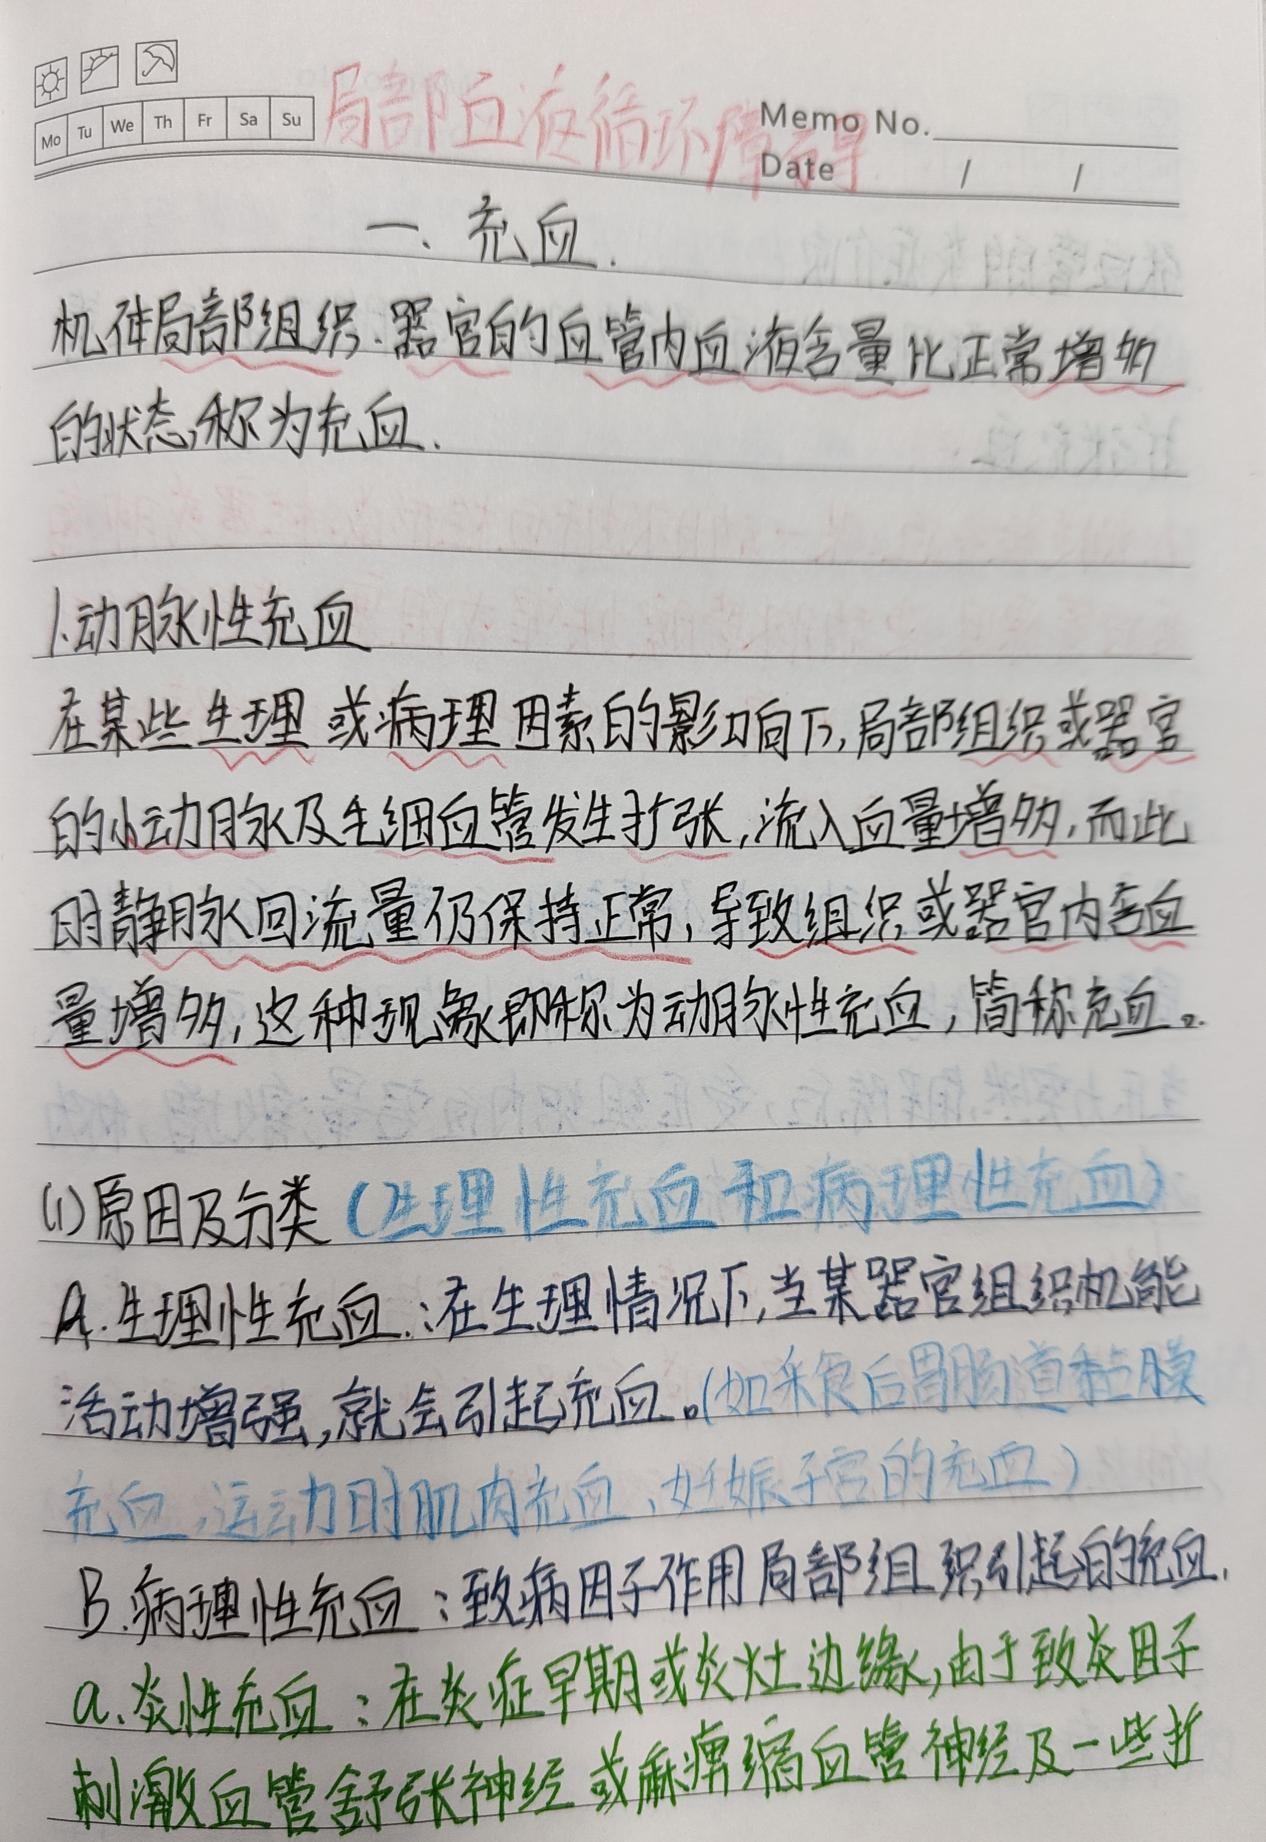 局部血液循环障碍
Memo No.
Mo Tu We Th Fr Sa Su
Date / /
一、充血.
机体局部组织.器官的血管内血液含量比正常增多
的状态,称为充血.
1.动脉性充血
在某些生理或病理因素的影响下,局部组织或器官
的小动脉及毛细血管发生扩张,流入血量增多,而此
时静脉回流量仍保持正常,导致组织或器官内含血
量增多,这种现象即称为动脉性充血,简称充血。
(1)原因及分类(生理性充血和病理性充血)
A.生理性充血:在生理情况下,当某器官组织机能
活动增强,就会引起充血。(如采食后胃肠道黏膜
充血,运动时肌肉充血,妊娠子宫的充血)
B.病理性充血:致病因子作用局部组织引起的充血.
a.炎性充血:在炎症早期或炎灶边缘,由于致炎因子
刺激血管舒张神经或麻痹缩血管神经及一些扩